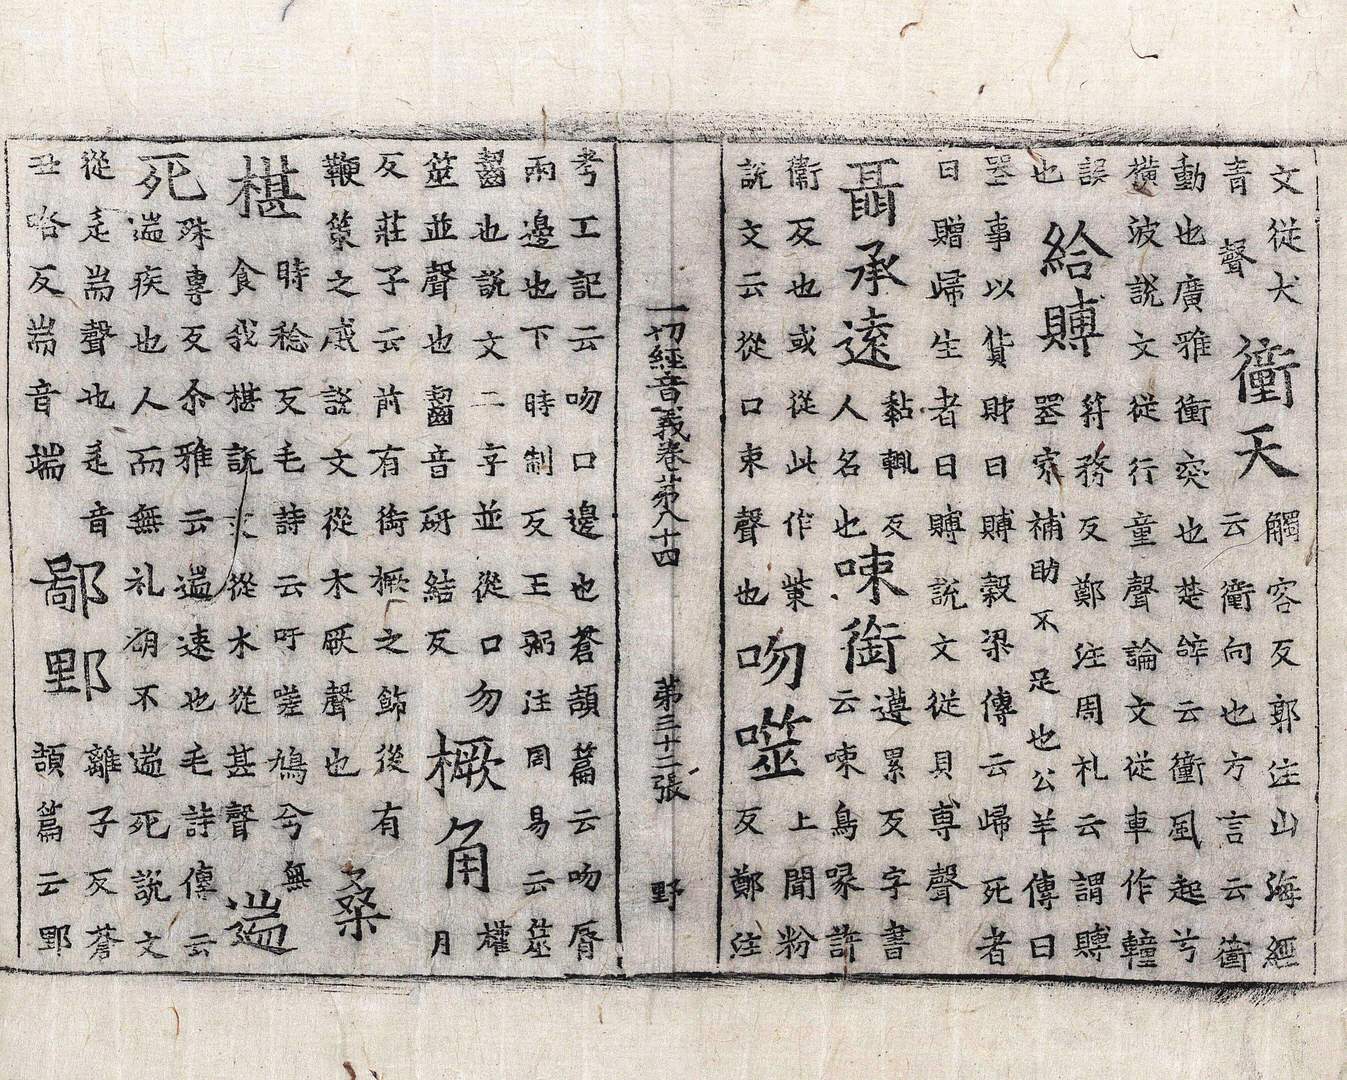 文從犬
青聲
衝天
觸容反郭注山海經
云衝向也方言云衝
動也廣雅衝突也楚辝云衝風起兮
橫波說文從行童聲論文從車作轋
誤
也
給賻
符務反鄭注周礼云謂賻
器家補助不足也公羊傳曰
器事以貨財曰賻穀梁傳云歸死者
曰贈歸生者曰賻說文從貝尃聲
聶承遠
黏輒反
人名也
唻銜
遵累反字書
云唻鳥喙許
衛反也或從此作㭰上聞粉
說文云從口朿聲也
吻噬
反鄭注
考工記云吻口邊也蒼頡篇云吻脣
兩邊也下時制反王弼注周易云筮
齧也說文二字並從口勿
筮並聲也齧音研結反
橛角
權
月
反莊子云前有銜橛之飾後有
鞭策之威說文從木厥聲也
桑
椹
時稔反毛詩云吁嗟鳩兮無
食我椹說文從木從甚聲
遄
死
殊專反尒雅云遄速也毛詩傳云
遄疾也人而無礼胡不遄死說文
從辵耑聲也辵音
丑咯反耑音端
鄙野
離子反蒼
頡篇云野
一切經音義卷第八十四 第三十二張 野